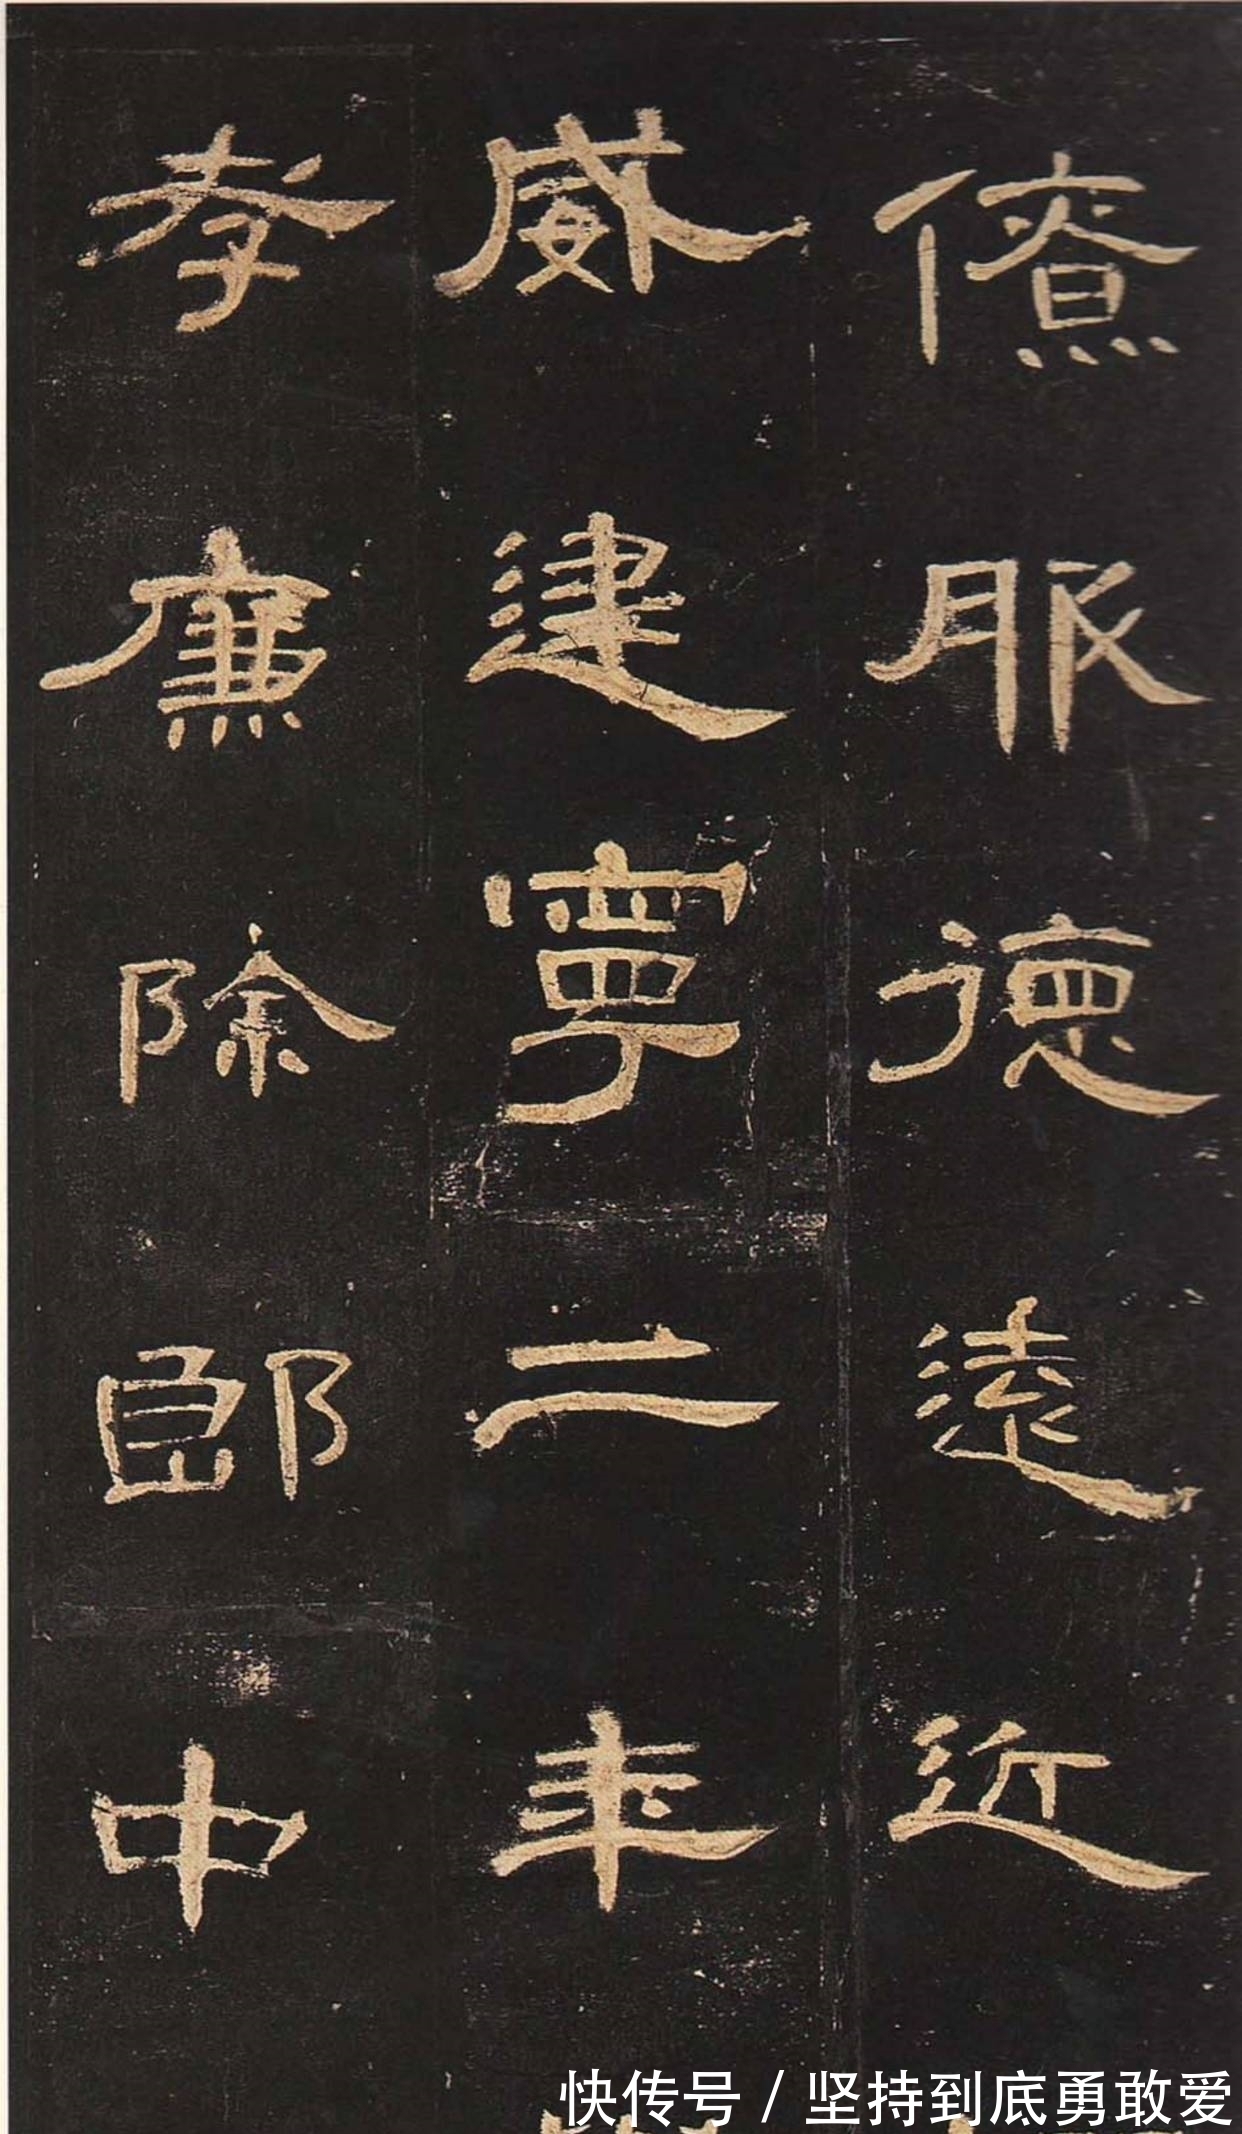 僚服德遠近
威建寧二年
孝廉除郎中
快传号 / 坚持到底勇敢爱